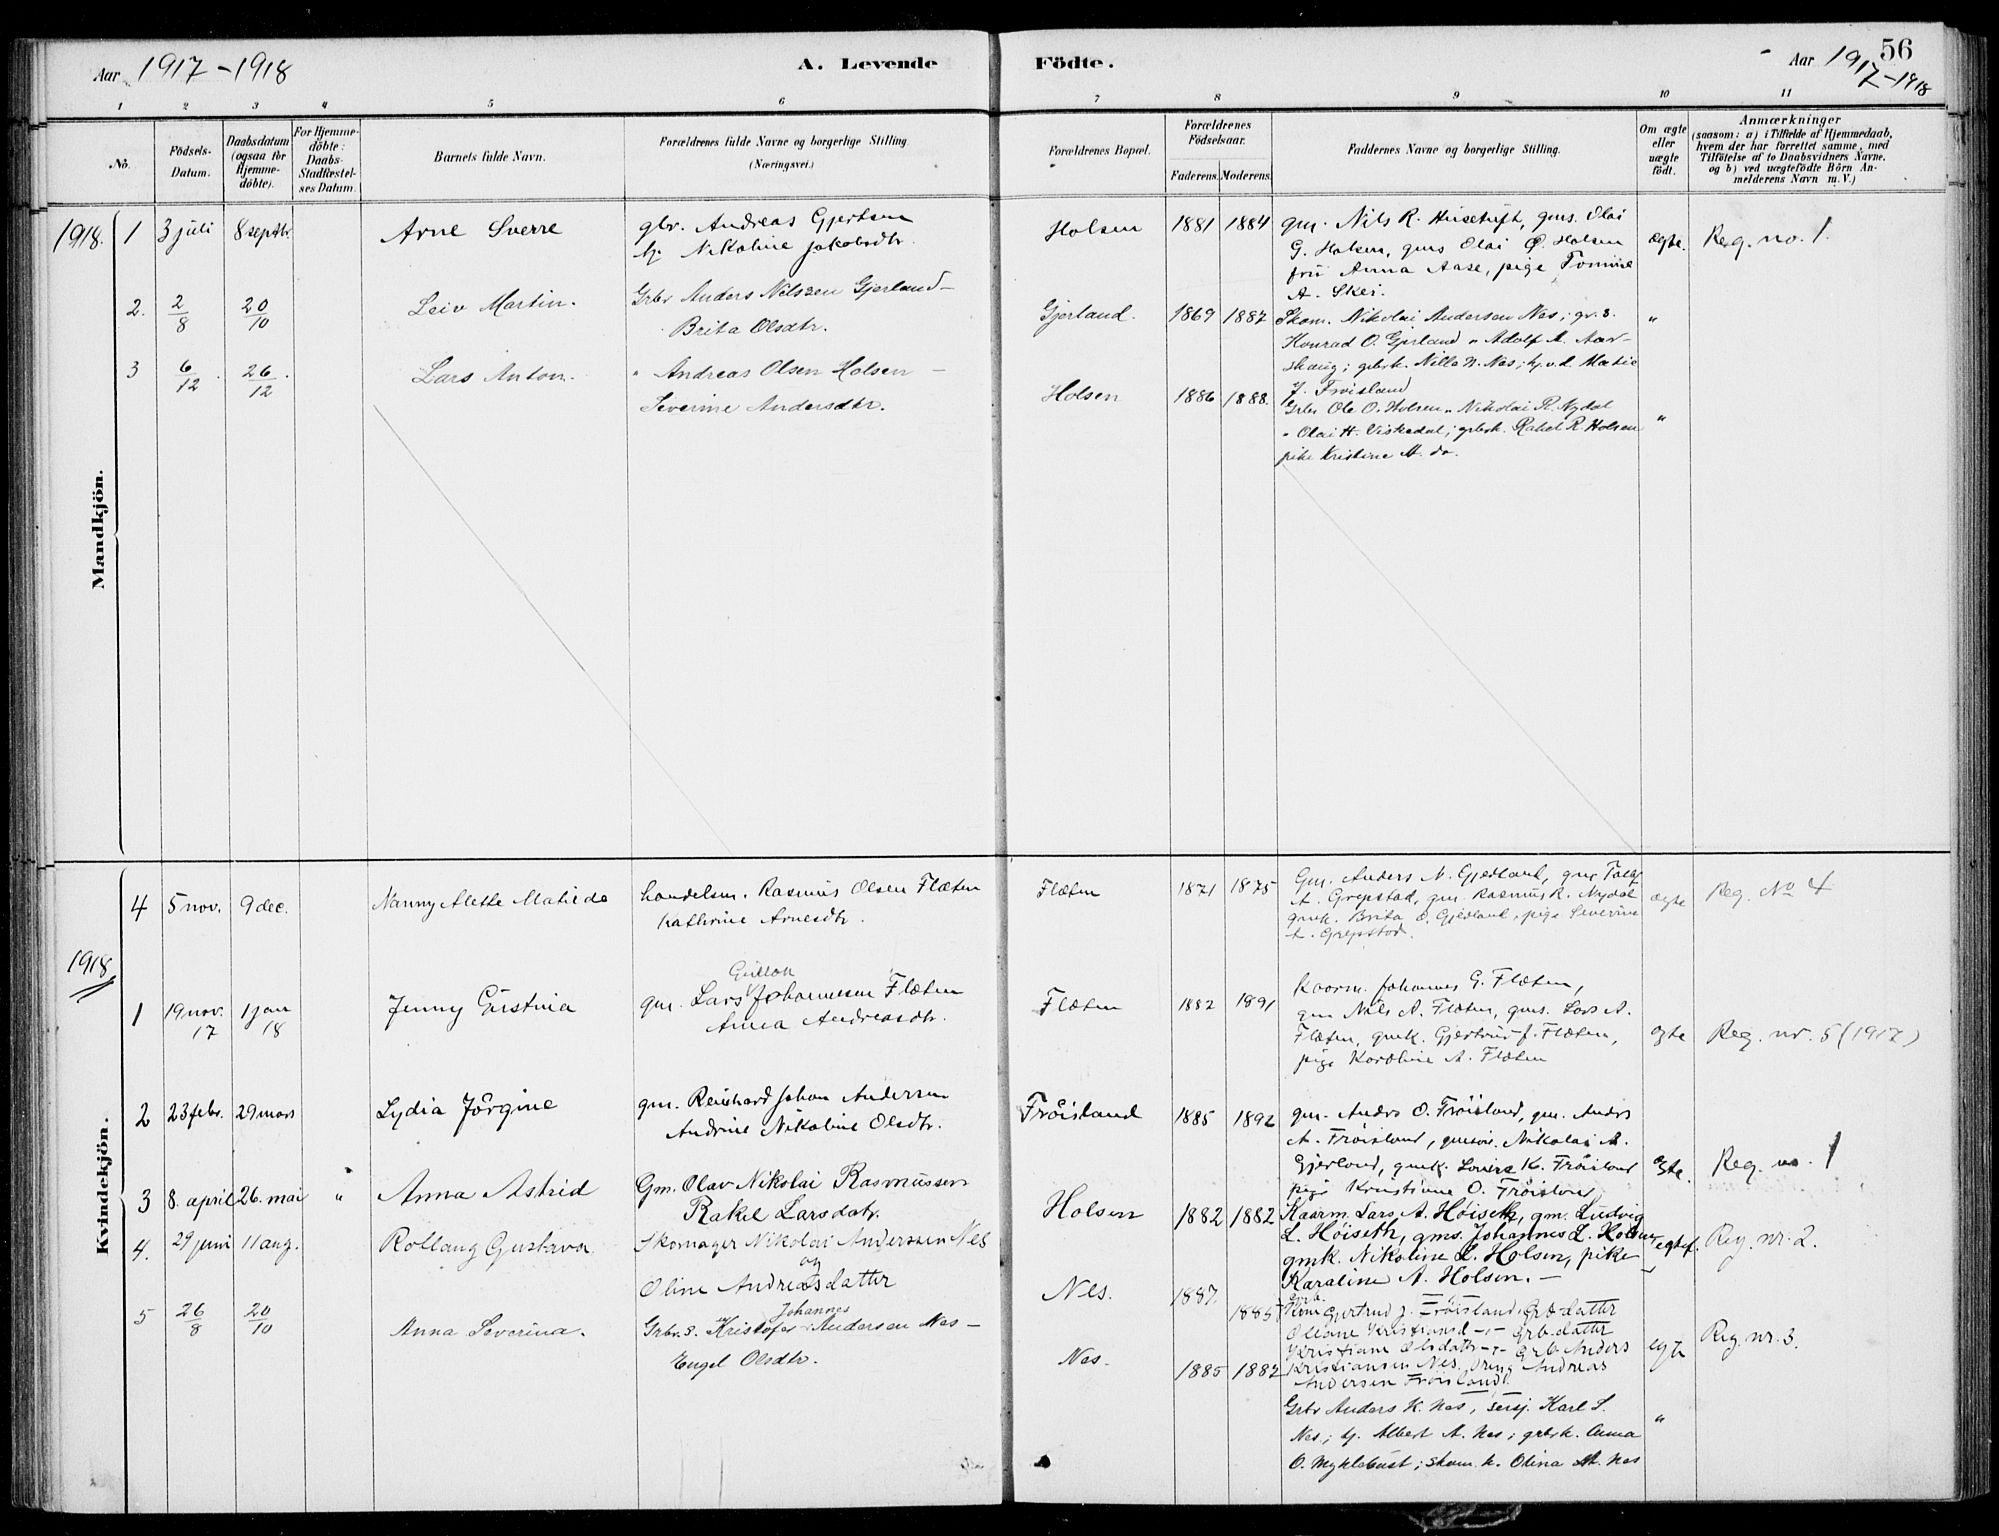 Aar 1917-1918
A. Levende
Födte.
Aar 1917-1918
56
1 2 3 4 5 6 7 8 9 10 11
No.
Födsels-Datum.
Daabsdatum (ogsaa for Hjemme-döbte).
For Hjemme-döbte: Daabs-Stadfæstel-ses Datum.
Barnets fulde Navn.
Forældrenes fulde Navne og borgerlige Stilling (Næringsvei.)
Forældrenes Bopæl.
Forældrenes Födselsaar.
Faderens. Moderens.
Faddernes Navne og borgerlige Stilling.
Om ægte eller uægte födt.
Anmærkninger
(saasom: a) i Tilfælde af Hjemmedaab,
hvem der har forrettet samme, med
Tilföielse af to Daabsvidners Navne,
og b) ved uægtefödte Börn An-
melderens Navn m. V.)
Mandkjön.
1918. 1 3 juli 8 septbr. Arne Sverre
gbr. Andreas Gjertsen
hj. Nikoline Jakobsdtr.
Holsen 1881 1884
gm. Nils R. Husetuft, gms. Olai
G. Holsen, gms Olai O. Holsen
frü Anna Aase, pige Tomine
A. Skei.
ægte. Reg. no. 1.
2. 2/8 20/10 Leiv Martin.
Grbr Anders Nilssen Gjerland -
Brita Olsdtr.
Gjerland. 1869 1887
Skom. Nikolai Andersen Nes; gr. s.
Konrad O. Gjerland " Adolf A. Aar-
skaug; grbrk. Nille N. Nes; hj.v.d. Martie
J. Frøisland
"
3 6/12 26/12 Lars Anton.
" Andreas Olsen Holsen -
Severine Andersdtr.
Holsen 1886 1888.
Grbr Ole O. Holsen " Nikolai R. Nydal
" Olai H. Viskedal; grbrk. Rakel R. Holsen
pike Kristine M. do.
"
Kvindekjön.
4 5 nov. 9 dec. Nanny Alette Matilde
handelsm. Rasmus Olsen Flæten
Kathrine Arnesdtr.
Flæten 1871 1875
Gm. Anders N. Gjedland, gm Tolef
A. Grepstad, gm. Rasmus R. Nydal
gmk. Brita O. Gjedland, pige Severine
A. Grepstad.
ægte Reg. No 4
1918
1 19 nov. 17 1 jan 18 Jenny Gustina
gm. Lars Johannesen Flæten
Anna Andreasdtr.
Flæten 1882 1891
Kaarm. Johannes G. Flæten,
gm Nils A. Flæten, gms. Lars A.
Flæten, gmk. Gjertrud J. Flæten,
pige Karoline A. Flæten
ægte Reg. nr. 5 (1917)
2 23 febr. 29 mars Lydia Jörgine
gm. Reinhard Johan Andersen
Andrine Nikoline Olsdtr.
Fröisland 1885 1892
gm. Anders O. Fröisland, gm. Anders
A. Fröisland, gmsøn. Nikolai A.
Gjerland, gmk. Lovise K. Fröisland
pige Kristiane O. Fröisland
ægte. Reg. no. 1
3 8. april 26. mai " Anna Astrid
Gm. Olav Nikolai Rasmussen
Rakel Larsdatr.
Holsen 1882 1882
Kaarm. Lars A. Høiseth, gm. Ludvig
L. Höiseth, gms. Johannes L. Holsen
gmk. Nikoline L. Holsen, pike
Karaline A. Holsen. -
egtef. Reg. nr. 2.
4. 29 juni 11 aug. Rollaug Gustava
Skomager Nikolai Anderssen Nes
og
Oline Andreasdatter
Nes. 1887. 1885
Gertrud J. Fröisland. Grb datter
Oliane Kristiansd -"- Grb. datter
Kristiane Olsdatr -"- Grb. Anders
Kristiansen Nes. Dreng Andreas
Andersen Fröisland.
egte Reg. nr. 3.
5 26/8 20/10 Anna Severina.
Johannes
Grbr.s. Kristofer Andersen Nes -
Engel Olsdtr.
Nes. 1885 1882
Grbr Anders K. Nes, sersj. Karl S.
Nes; hj. Albert A. Nes; grbrk. Anna
O. Myklebust; skom. k. Olina A. Nes
"